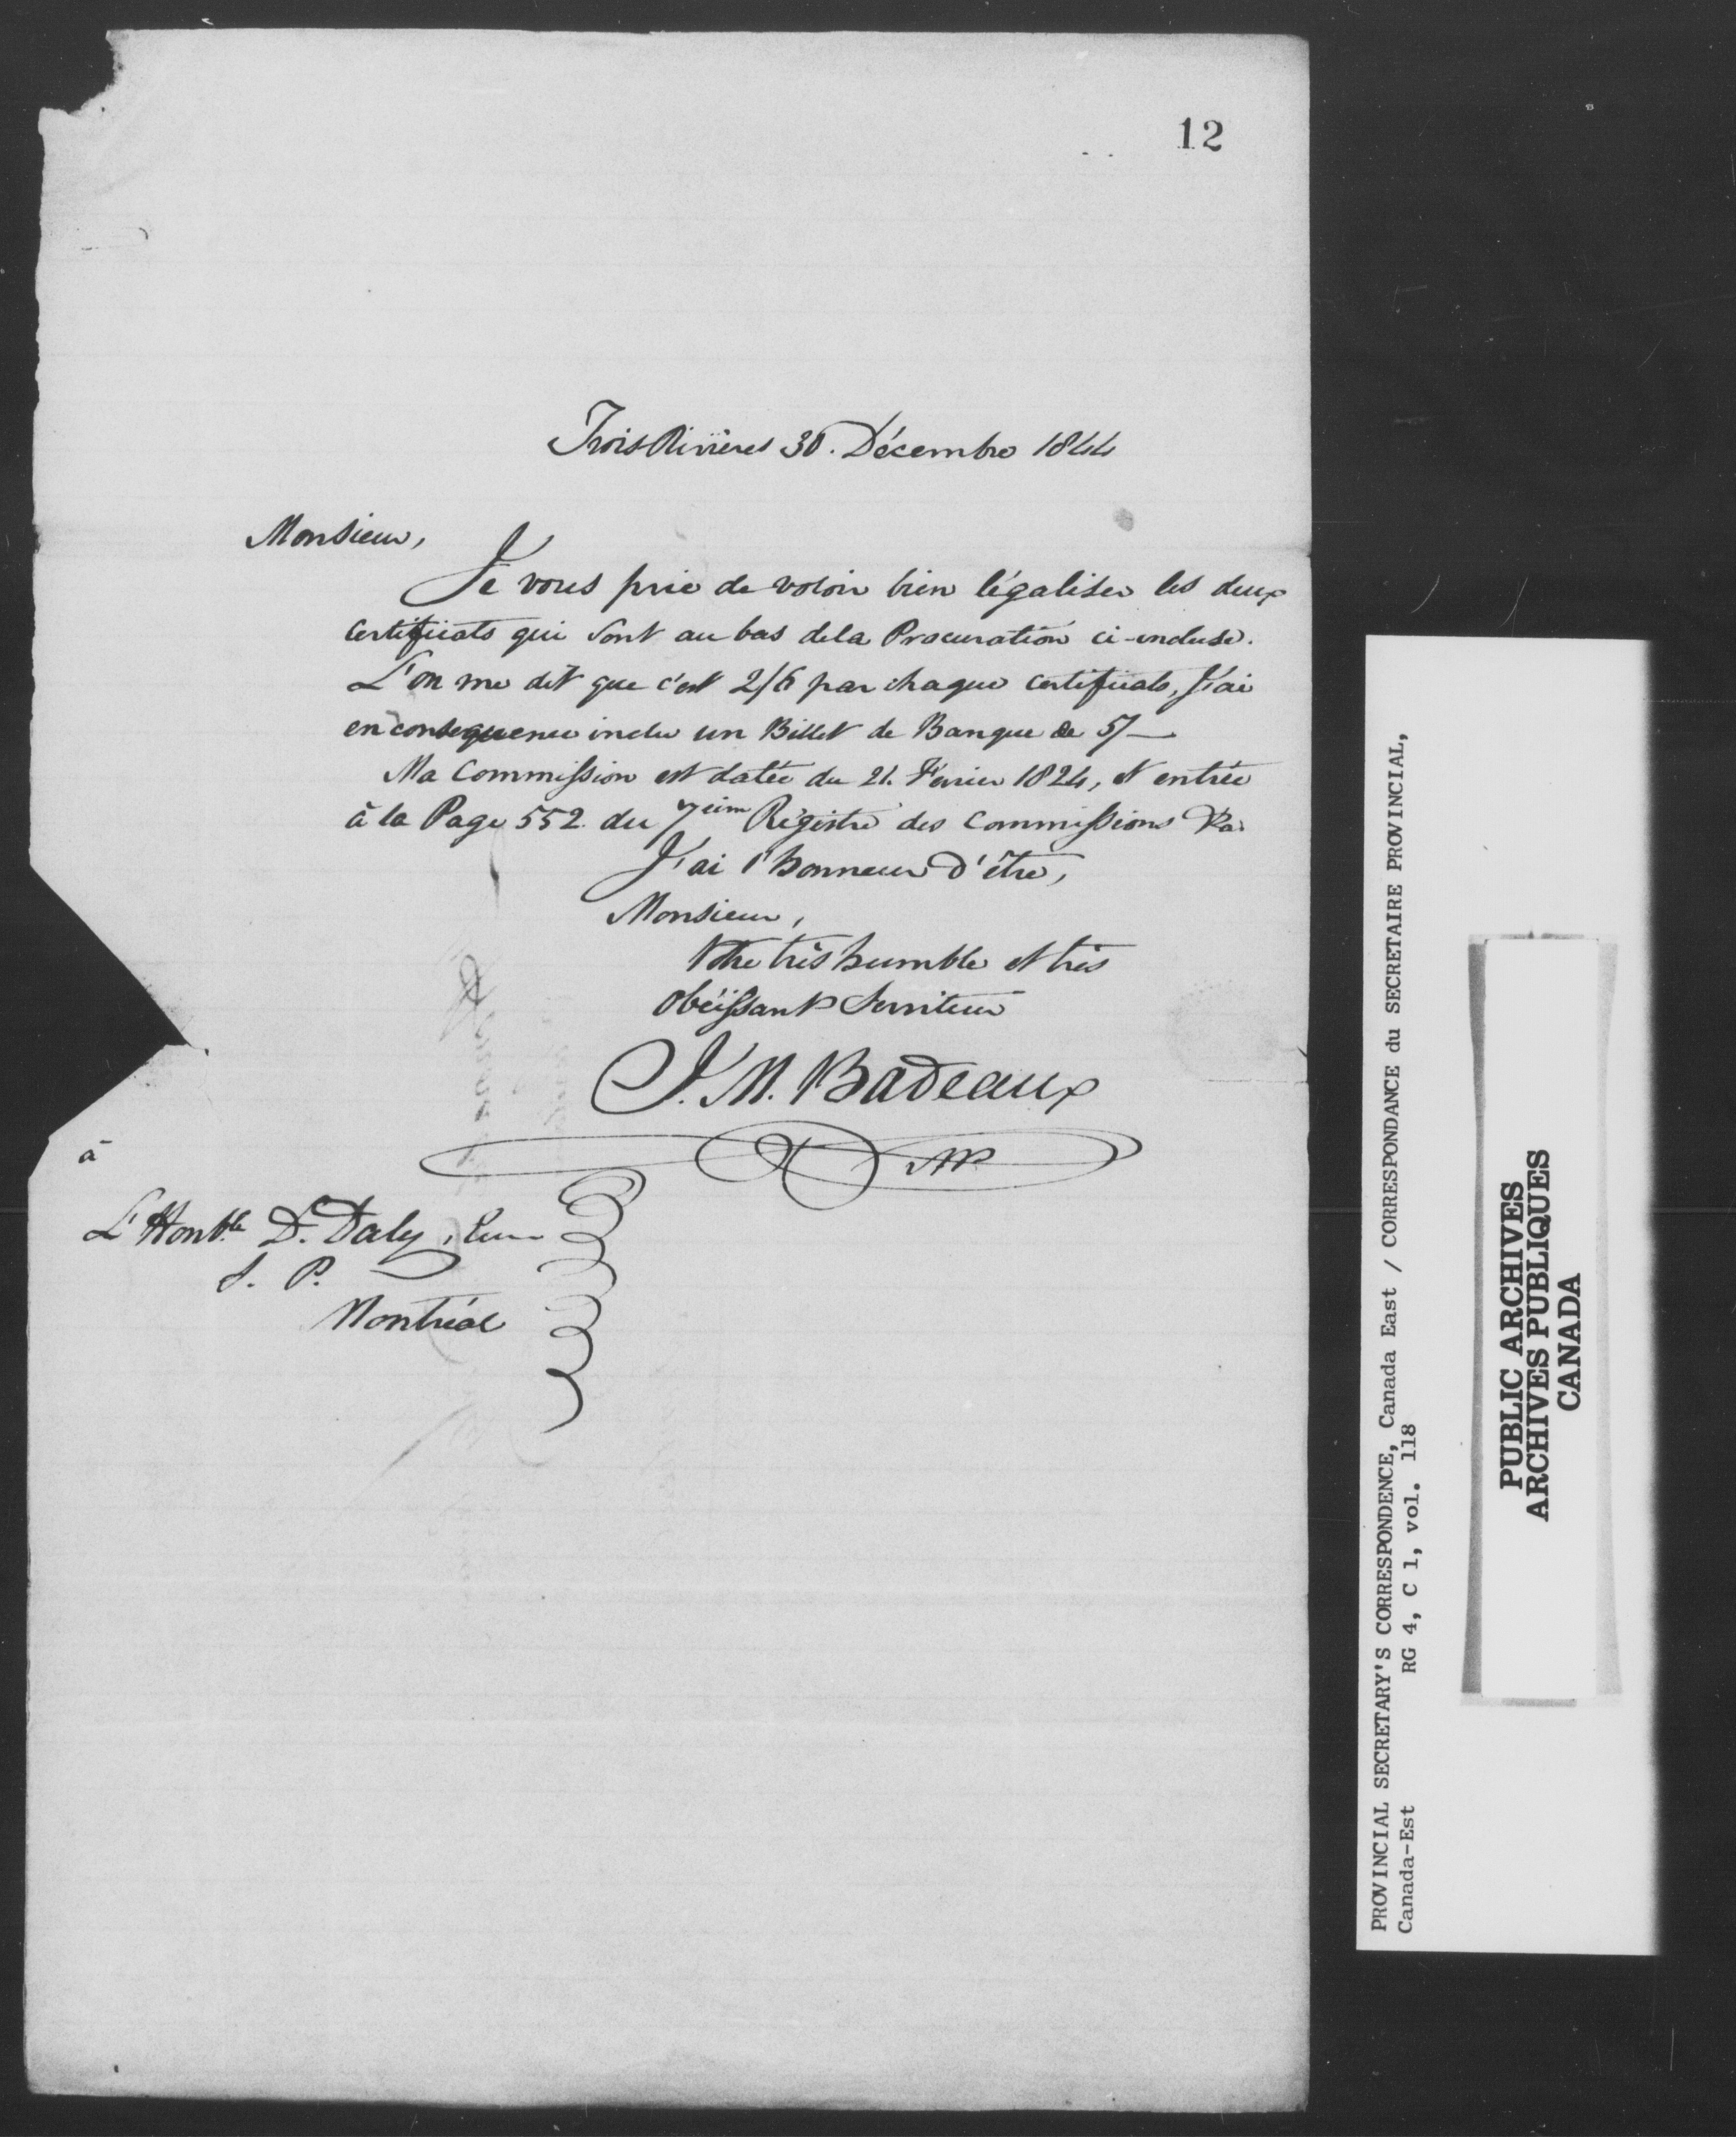 12
Trois-Rivières 30. Décembre 1844
Monsieur,
Je vous prie de voloir bien légaliser les deux
certificats qui sont au bas de la Procuration ci-incluse.
L'on me dit que c'est 2/6 par chaque certificats, J'ai
en consequence inclu un Billet de Banque de 5/—
Ma Commission est datée du 21. Février 1824, et entrée
à la Page 552. du 7ieme Régistre des Commissions &a.
J'ai l'honneur d'être,
Monsieur,
Votre très humble et très
obéissant Serviteur
J. M. Badeaux
NP
à
L'Honble. D. Daly,
S. P.
Montréal
PROVINCIAL SECRETARY'S CORRESPONDENCE, Canada East / CORRESPONDANCE du SECRETAIRE PROVINCIAL,
Canada-Est RG 4, C 1, vol. 118
PUBLIC ARCHIVES
ARCHIVES PUBLIQUES
CANADA